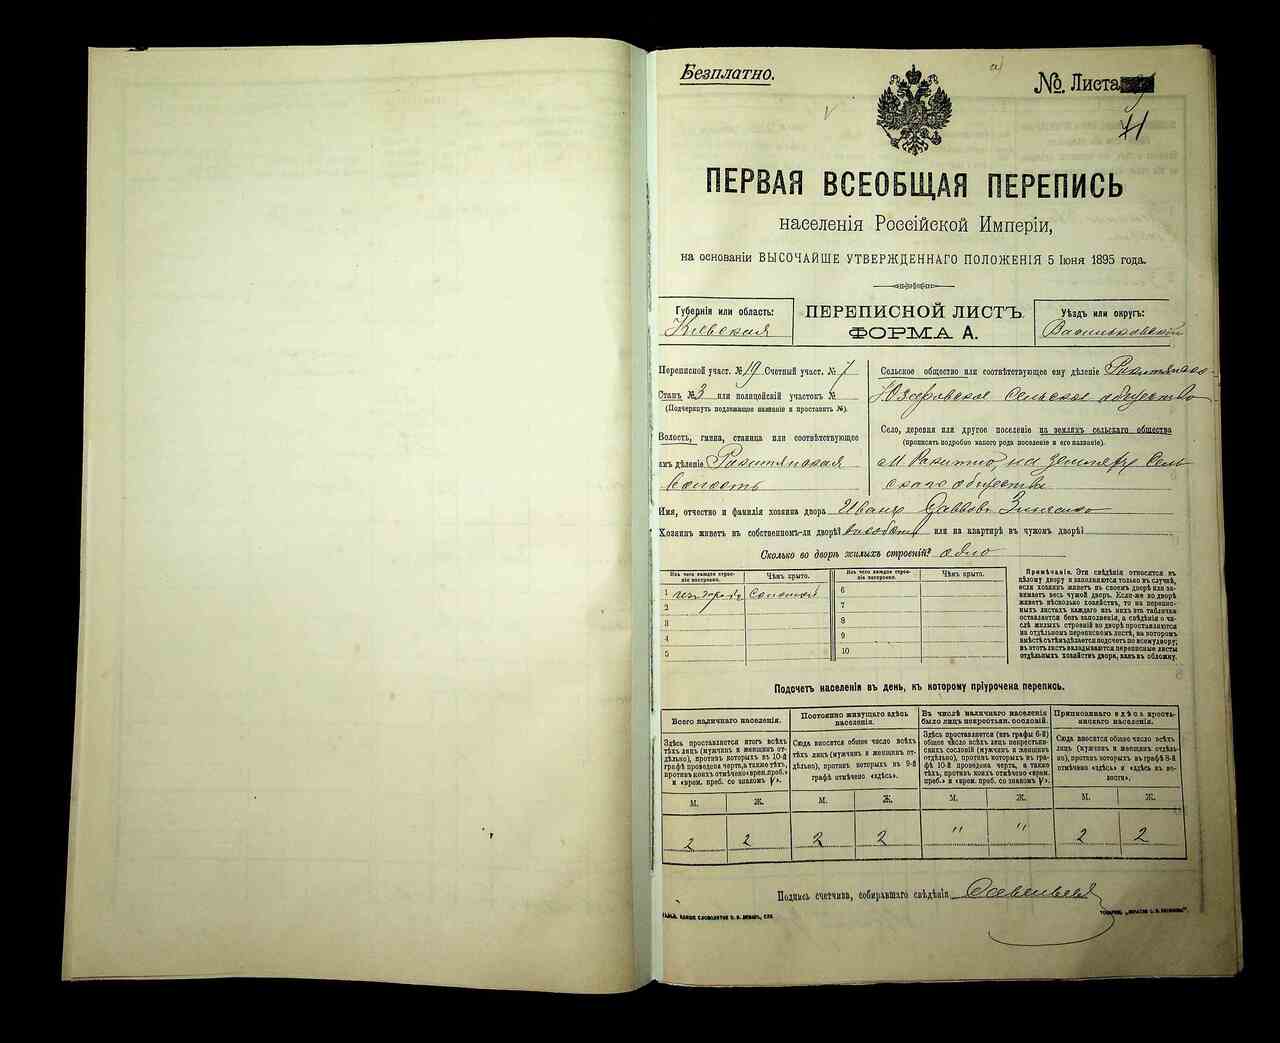 Безплатно.
№. Листа
ПЕРВАЯ ВСЕОБЩАЯ ПЕРЕПИСЬ
населенія Россійской Имперіи,
на основаніи ВЫСОЧАЙШЕ УТВЕРЖДЕННАГО ПОЛОЖЕНІЯ 5 Іюня 1895 года.
Губернія или область:
Кіевская
ПЕРЕПИСНОЙ ЛИСТЪ
ФОРМА А.
Уѣздъ или округъ:
Васильковскій
Переписной участ. № 19 Счетный участ. № 7
Станъ № 3 или полицейскій участокъ №
(Подчеркнуть подлежащее названіе и проставить №).
Волость, гмина, станица или соотвѣтствующее
имъ дѣленіе Ракитянская
волость
Сельское общество или соотвѣтствующее ему дѣленіе Ракитянско-
сельское общество
Село, деревня или другое поселеніе на земляхъ сельскаго общества
(прописать подробно какого рода поселеніе и его названіе).
м Ракитно, на земляхъ Сель
скаго общества
Имя, отчество и фамилія хозяина двора Иванъ Саввовъ
Хозяинъ живетъ въ собственномъ-ли дворѣ? или на квартирѣ въ чужомъ дворѣ?
Сколько во дворѣ жилыхъ строеній? одно
Изъ чего каждое строе-
ніе построено.
Чѣмъ крыто.
Изъ чего каждое строе-
ніе построено.
Чѣмъ крыто.
1 изъ дерева Соломой
2
3
4
5
6
7
8
9
10
Примѣчаніе. Эти свѣдѣнія относятся къ
цѣлому двору и заполняются только въ случаѣ,
если хозяинъ живетъ въ своемъ дворѣ или за-
нимаетъ весь чужой дворъ. Если-же во дворѣ
живетъ нѣсколько хозяйствъ, то на перепис-
ныхъ листахъ каждаго изъ нихъ эта табличка
оставляется безъ заполненія, а свѣдѣнія о чи-
слѣ жилыхъ строеній во дворѣ проставляются
на отдѣльномъ переписномъ листѣ, на которомъ
вмѣстѣ съ тѣмъ дѣлается подсчетъ по всему двору;
въ этотъ листъ вкладываются переписные листы
отдѣльныхъ хозяйствъ двора, какъ въ обложку.
Подсчетъ населенія въ день, къ которому пріурочена перепись.
Всего наличнаго населенія.
Постоянно живущаго здѣсь
населенія.
Въ числѣ наличнаго населенія
было лицъ некрестьян. сословій.
Приписаннаго здѣсь кресть-
янскаго населенія.
Здѣсь проставляется итогъ всѣхъ
тѣхъ лицъ (мужчинъ и женщинъ от-
дѣльно), противъ которыхъ въ 10-й
графѣ проведена черта, а также тѣхъ,
противъ коихъ отмѣчено «врем. проб.»
и «врем. преб. со знакомъ V».
Сюда вносится общее число всѣхъ
тѣхъ лицъ (мужчинъ и женщинъ от-
дѣльно), противъ которыхъ въ 9-й
графѣ отмѣчено «здѣсь».
Здѣсь проставляется (изъ графы 6-й)
общее число всѣхъ лицъ некрестьян-
скихъ сословій (мужчинъ и женщинъ
отдѣльно), противъ которыхъ въ гра-
фѣ 10-й проведена черта, а также
тѣхъ, противъ коихъ отмѣчено «врем.
преб.» и «врем. преб. со знакомъ V».
Сюда вносится общее число всѣхъ
лицъ (мужчинъ и женщинъ отдѣль-
но), противъ которыхъ въ графѣ 8-й
отмѣчено «здѣсь» и «здѣсь въ во-
лости».
М. Ж. М. Ж. М. Ж. М. Ж.
2 2 2 2 " " 2 2
Подпись счетчика, собиравшаго свѣдѣнія